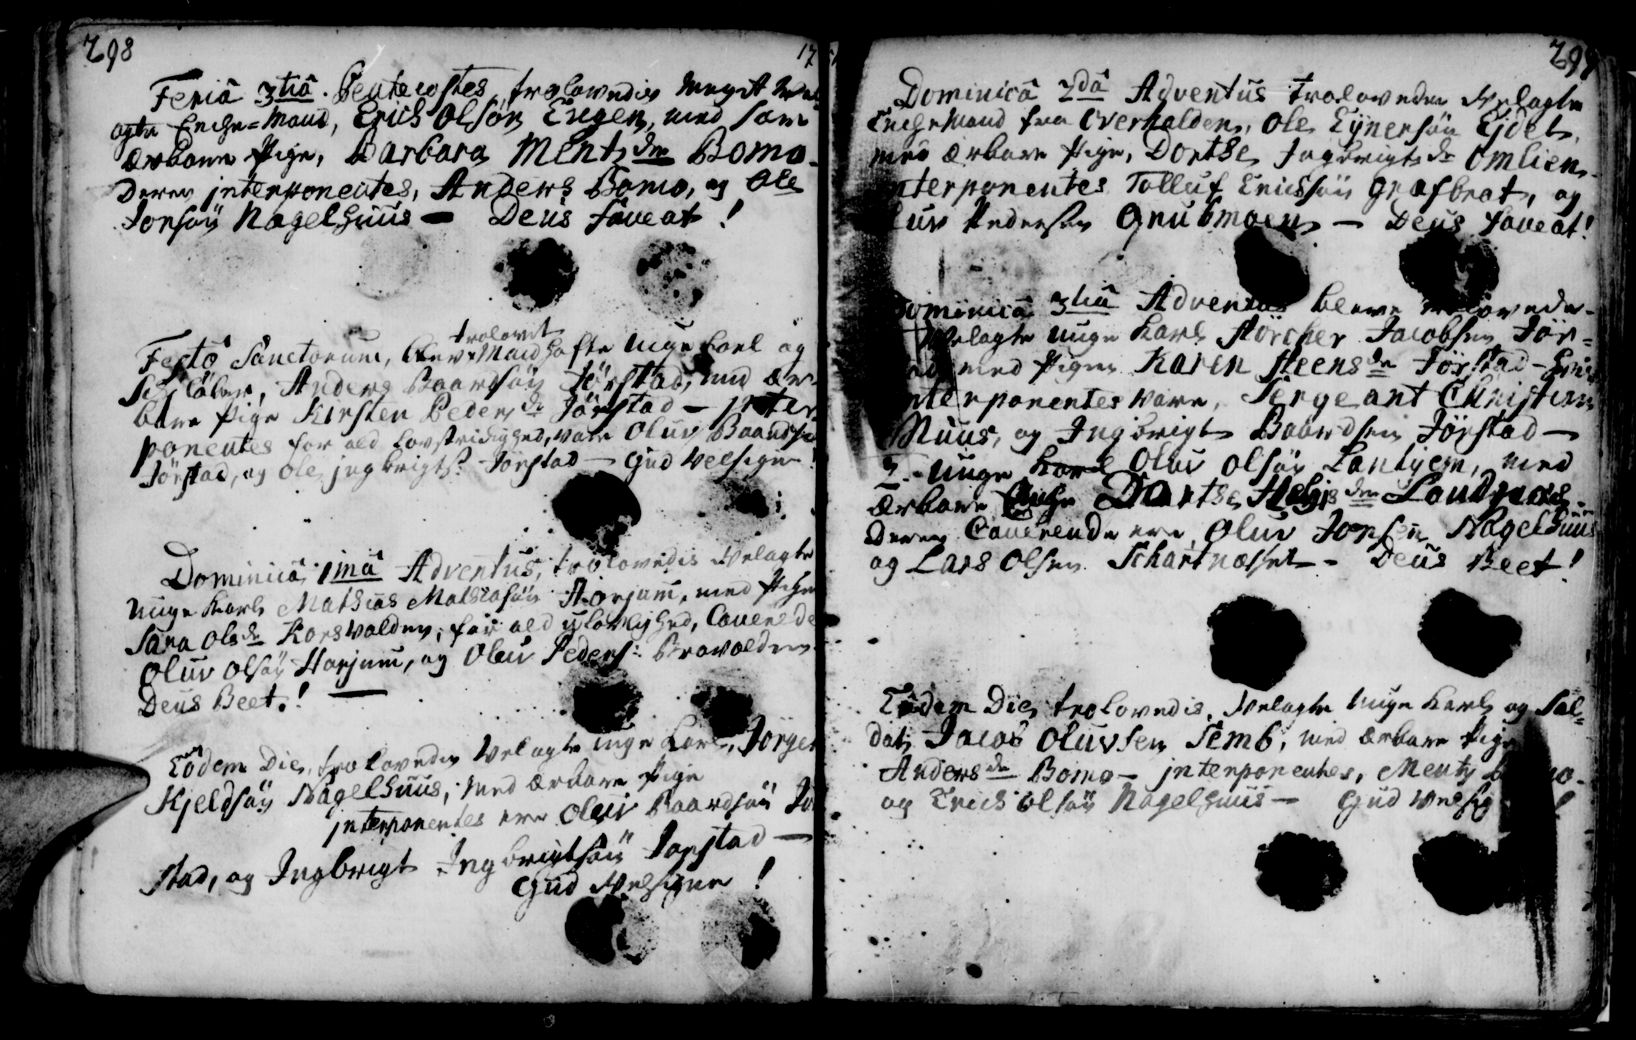 298
17
Feriâ 3tiâ Pentecostes, trolovedis Meget Vel
agte Enche=Mand, Erich Olsön Engen, med sam
ærbare Pige, Barbara Mentsdr Bomo
Deres interponentes, Anders Bomo, og Ole
Jonsöñ Nagelhuus — Deus faveat!
trolovet
Festô Sanctorum, blev Mandhafte unge Karl og
Anders Baardsöñ Jörstad, med ær-
bare Pige Kirsten Pedersdr Jörstad — inter
ponentes for ald lovstridighed, vare Oluv Baardsen
Jörstad, og Ole jngbrigts: Jörstad — Gud Velsigne!
Dominicâ 1mâ Adventus, trolovedis Velagte
unge Karl Mathias Mathiasöñ Horjum, med Pigen
Sara Olsdr Korsvolden, for ald ulovlighed, Caverede
Oluv Olsöñ Horjum, og Oluv Peders: Brovolden
Deus Beet! —
Eodem Die, trolovedes Velagte unge Karl, Jörgen
Kjeldsöñ Nagelhuus, med ærbare Pige
jnterponentes ere Oluv Baardsöñ Jör
stad, og Ingbrigt Ingbrigtsöñ Jorstad —
Gud Velsigne!
299
Dominicâ 2dâ Adventus trolovedes Velagte
Enche Mand fra Overhalden, Ole Eynersöñ Ejdet,
med ærbare Pige, Dorthe Ingbrigtsdr Omlien
interponentes Tolluf Erichsöñ Græsbrøt, og
Oluv Pedersen Grubmoen — Deus faveat!
Dominicâ 3tiâ Adventus bleve trolovede
Velagte unge Karl Störcher Jacobsen Jör=
med Pigen Karen Steensdr Jörstad —
interponentes vare, Sergeant Christian
Muus, og Ingbrigt Baardsen Jörstad —
2. unge Karl Oluv Olsöñ Lantyem, med
ærbare Enche Dorthe Helgesdr
deres Caverende ere, Oluv Jonsen Nagelhuus
og Lars Olsen Schartnæsset — Deus Beet!
Eodem Die, trolovedis Velagte unge Karl og Sol=
dat, Jacob Oluvsen Semb, med ærbare Pige
Andersdr Bomo — jnterponentes, Ments
og Erich Olsöñ Nagelhuus — Gud